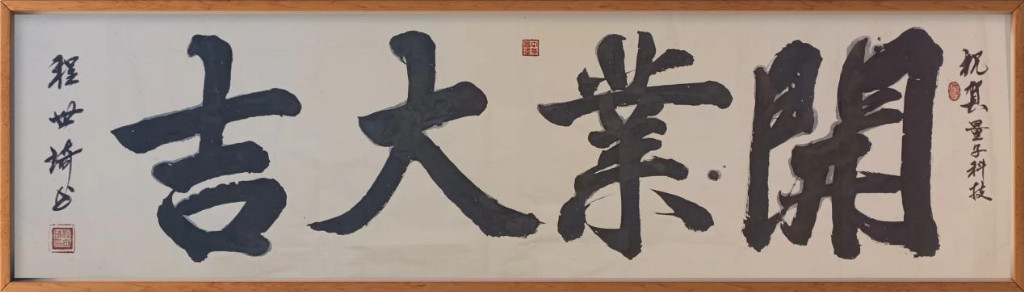 祝真量子科技
開業大吉
程世琦书